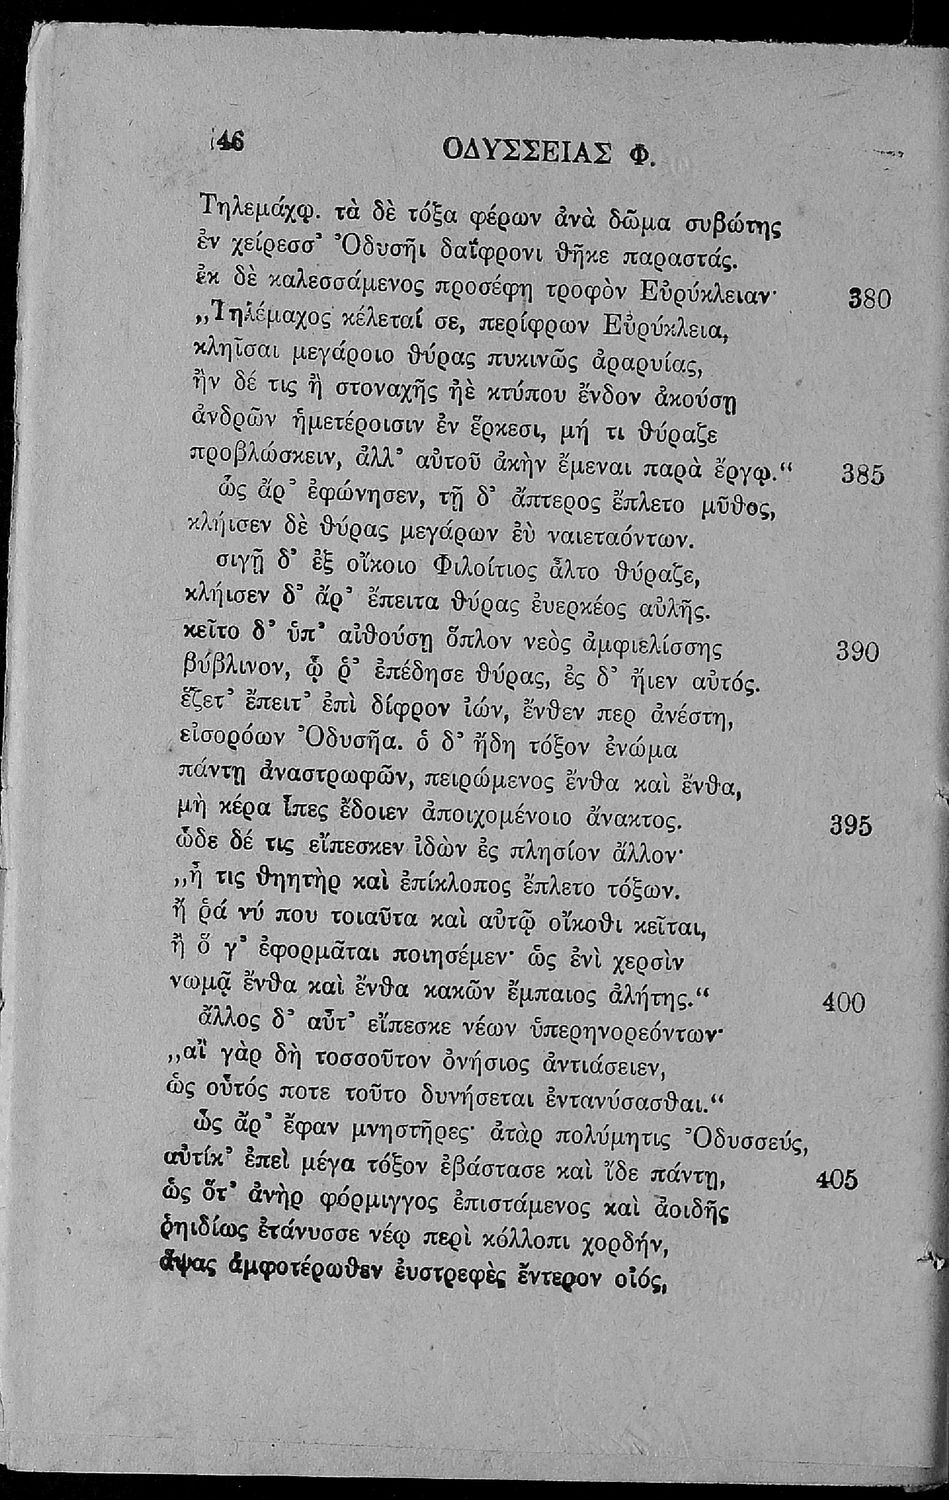 46
ΟΔΥΣΣΕΙΑΣ Φ.
Τηλεμάχῳ. τὰ δὲ τόξα φέρων ἀνὰ δῶμα συβώτης
ἐν χείρεσσ' Ὀδυσῆι δαΐφρονι θῆκε παραστάς.
ἐκ δὲ καλεσσάμενος προσέφη τροφὸν Εὐρύκλειαν· 380
„Τηλέμαχος κέλεταί σε, περίφρων Εὐρύκλεια,
κληῖσαι μεγάροιο θύρας πυκινῶς ἀραρυίας,
ἢν δέ τις ἢ στοναχῆς ἠὲ κτύπου ἔνδον ἀκούσῃ
ἀνδρῶν ἡμετέροισιν ἐν ἕρκεσι, μή τι θύραζε
προβλώσκειν, ἀλλ' αὐτοῦ ἀκὴν ἔμεναι παρὰ ἔργῳ.“ 385
ὣς ἄρ' ἐφώνησεν, τῇ δ' ἄπτερος ἔπλετο μῦθος,
κλήισεν δὲ θύρας μεγάρων ἐὺ ναιεταόντων.
σιγῇ δ' ἐξ οἴκοιο Φιλοίτιος ἆλτο θύραζε,
κλήισεν δ' ἄρ' ἔπειτα θύρας ἐυερκέος αὐλῆς.
κεῖτο δ' ὑπ' αἰθούσῃ ὅπλον νεὸς ἀμφιελίσσης 390
βύβλινον, ᾧ ῥ' ἐπέδησε θύρας, ἐς δ' ἤιεν αὐτός.
ἕζετ' ἔπειτ' ἐπὶ δίφρον ἰών, ἔνθεν περ ἀνέστη,
εἰσορόων Ὀδυσῆα. ὁ δ' ἤδη τόξον ἐνώμα
πάντῃ ἀναστρωφῶν, πειρώμενος ἔνθα καὶ ἔνθα,
μὴ κέρα ἶπες ἔδοιεν ἀποιχομένοιο ἄνακτος. 395
ὧδε δέ τις εἴπεσκεν ἰδὼν ἐς πλησίον ἄλλον·
„ἦ τις θηητὴρ καὶ ἐπίκλοπος ἔπλετο τόξων.
ἤ ῥά νύ που τοιαῦτα καὶ αὐτῷ οἴκοθι κεῖται,
ἢ ὅ γ' ἐφορμᾶται ποιησέμεν· ὡς ἐνὶ χερσὶν
νωμᾷ ἔνθα καὶ ἔνθα κακῶν ἔμπαιος ἀλήτης.“ 400
ἄλλος δ' αὖτ' εἴπεσκε νέων ὑπερηνορεόντων·
„αἲ γὰρ δὴ τοσσοῦτον ὀνήσιος ἀντιάσειεν,
ὡς οὗτός ποτε τοῦτο δυνήσεται ἐντανύσασθαι.“
ὣς ἄρ' ἔφαν μνηστῆρες· ἀτὰρ πολύμητις Ὀδυσσεύς,
αὐτίκ' ἐπεὶ μέγα τόξον ἐβάστασε καὶ ἴδε πάντῃ, 405
ὡς ὅτ' ἀνὴρ φόρμιγγος ἐπιστάμενος καὶ ἀοιδῆς
ῥηιδίως ἐτάνυσσε νέῳ περὶ κόλλοπι χορδήν,
ἅψας ἀμφοτέρωθεν ἐυστρεφὲς ἔντερον οἰός,